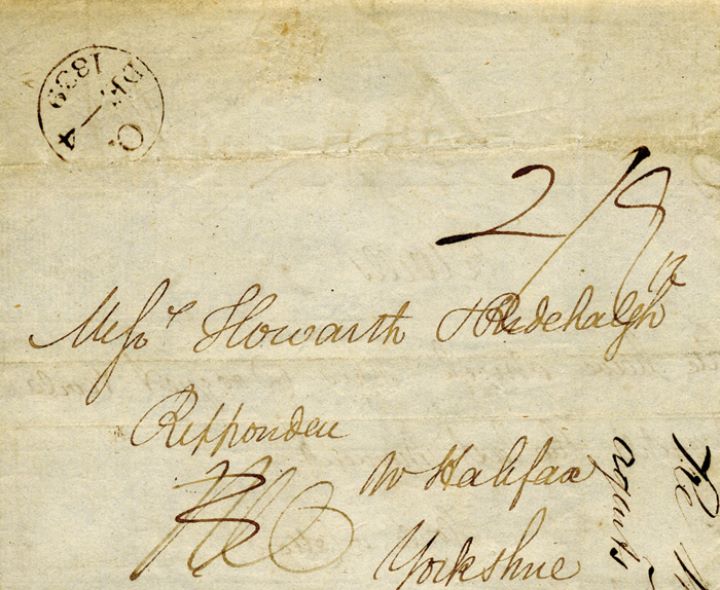 DE 4
1839
2/8
Messrs Howarth & Ridehalgh
Ripponden
Nr Halifax
Yorkshire
agents